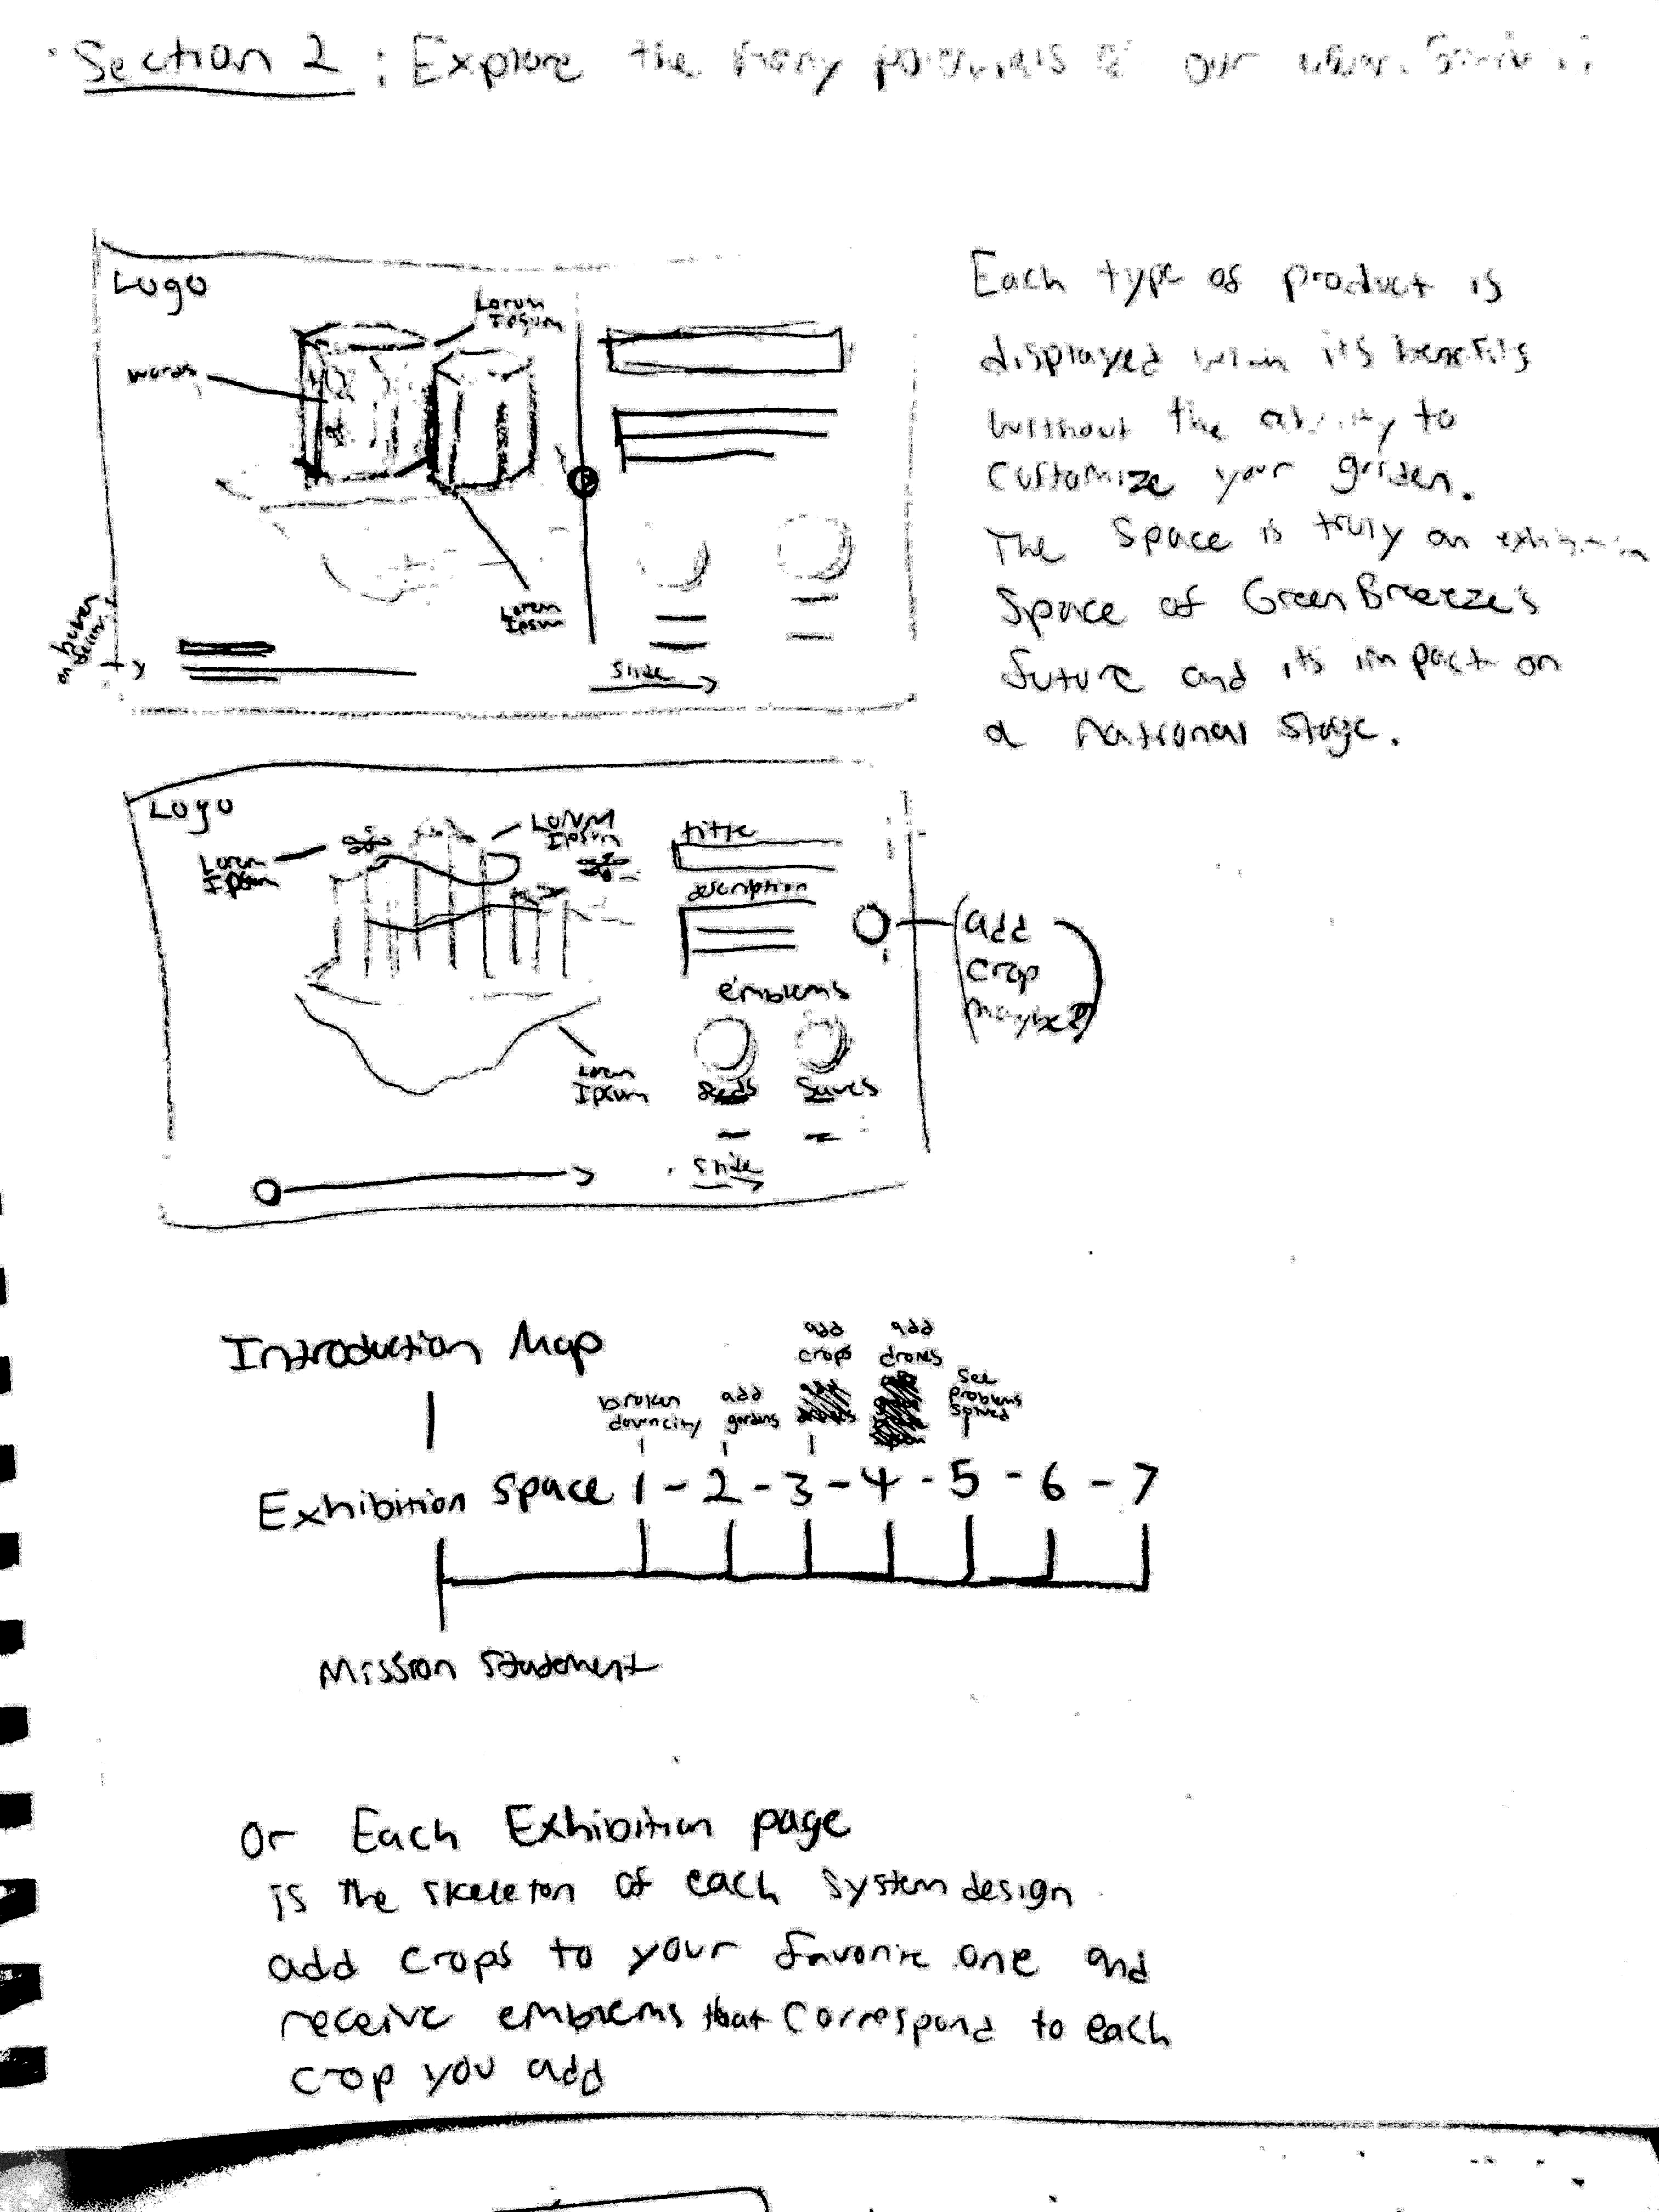 Section 2 : Explore the many potentials of our urban
Logo
Lorum
Ipsum
words
Lorem
Ipsum
on hover
Slide
Each type of product is
displayed within its benefits
without the ability to
customize your garden.
The space is truly an exhibition
space of GreenBreeze's
future and its impact on
a national stage.
Logo
Lorem
Ipsum
LORUM
Ipsum
title
description
emblems
Lorem
Ipsum
Seeds
Saves
Slide
(add
crop
maybe?)
Introduction Map
broken
down city
add
gardens
add
crops
add
drones
see
problems
solved
Exhibition Space 1 - 2 - 3 - 4 - 5 - 6 - 7
Mission Statement
Or Each Exhibition page
is the skeleton of each system design
add crops to your favorite one and
receive emblems that correspond to each
crop you add